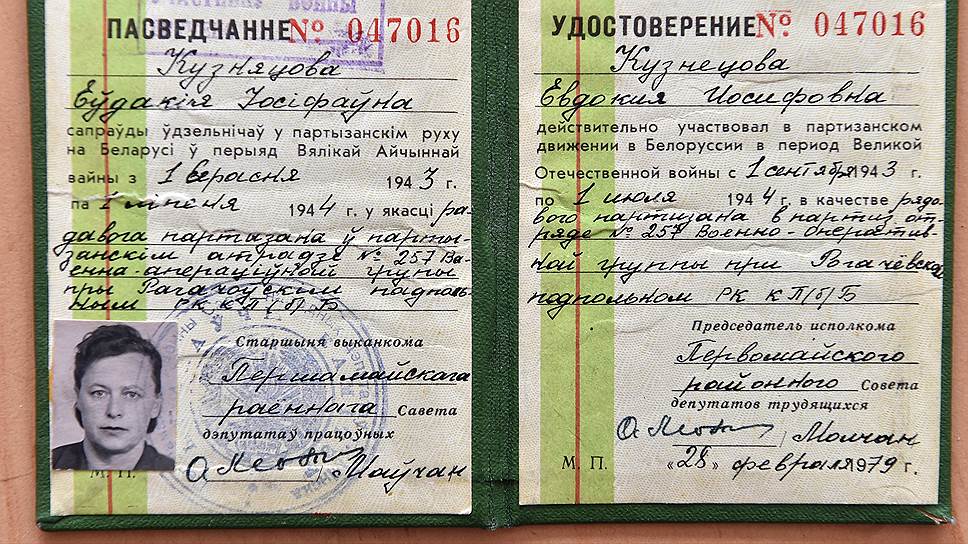 ВОЙНЫ
ПАСВЕДЧАННЕ № 047016
Кузняцова
Еўдакія Іосіфаўна
сапраўды ўдзельнічаў у партызанскім руху
на Беларусі ў перыяд Вялікай Айчыннай
вайны з 1 верасня 1943 г.
па 1 ліпеня 1944 г. у якасці ра-
давога партызана ў парты-
занскім атрадзе № 257 Ва-
енна-аперацыўнай групы
пры Рагачоўскім падполь-
ным РК КП(б)Б
Старшыня выканкома
Першамайскага
раённага Савета
дэпутатаў працоўных
Маўчан
М. П.
УДОСТОВЕРЕНИЕ № 047016
Кузнецова
Евдокия Иосифовна
действительно участвовал в партизанском
движении в Белоруссии в период Великой
Отечественной войны с 1 сентября 1943 г.
по 1 июля 1944 г. в качестве рядо
вого партизана в партиз. от-
ряде № 257 Военно-Оператив-
ной группы при Рогачёвском
подпольном РК КП(б)Б
Председатель исполкома
Первомайского
районного Совета
депутатов трудящихся
Молчан
М. П. «28» февраля 1979 г.